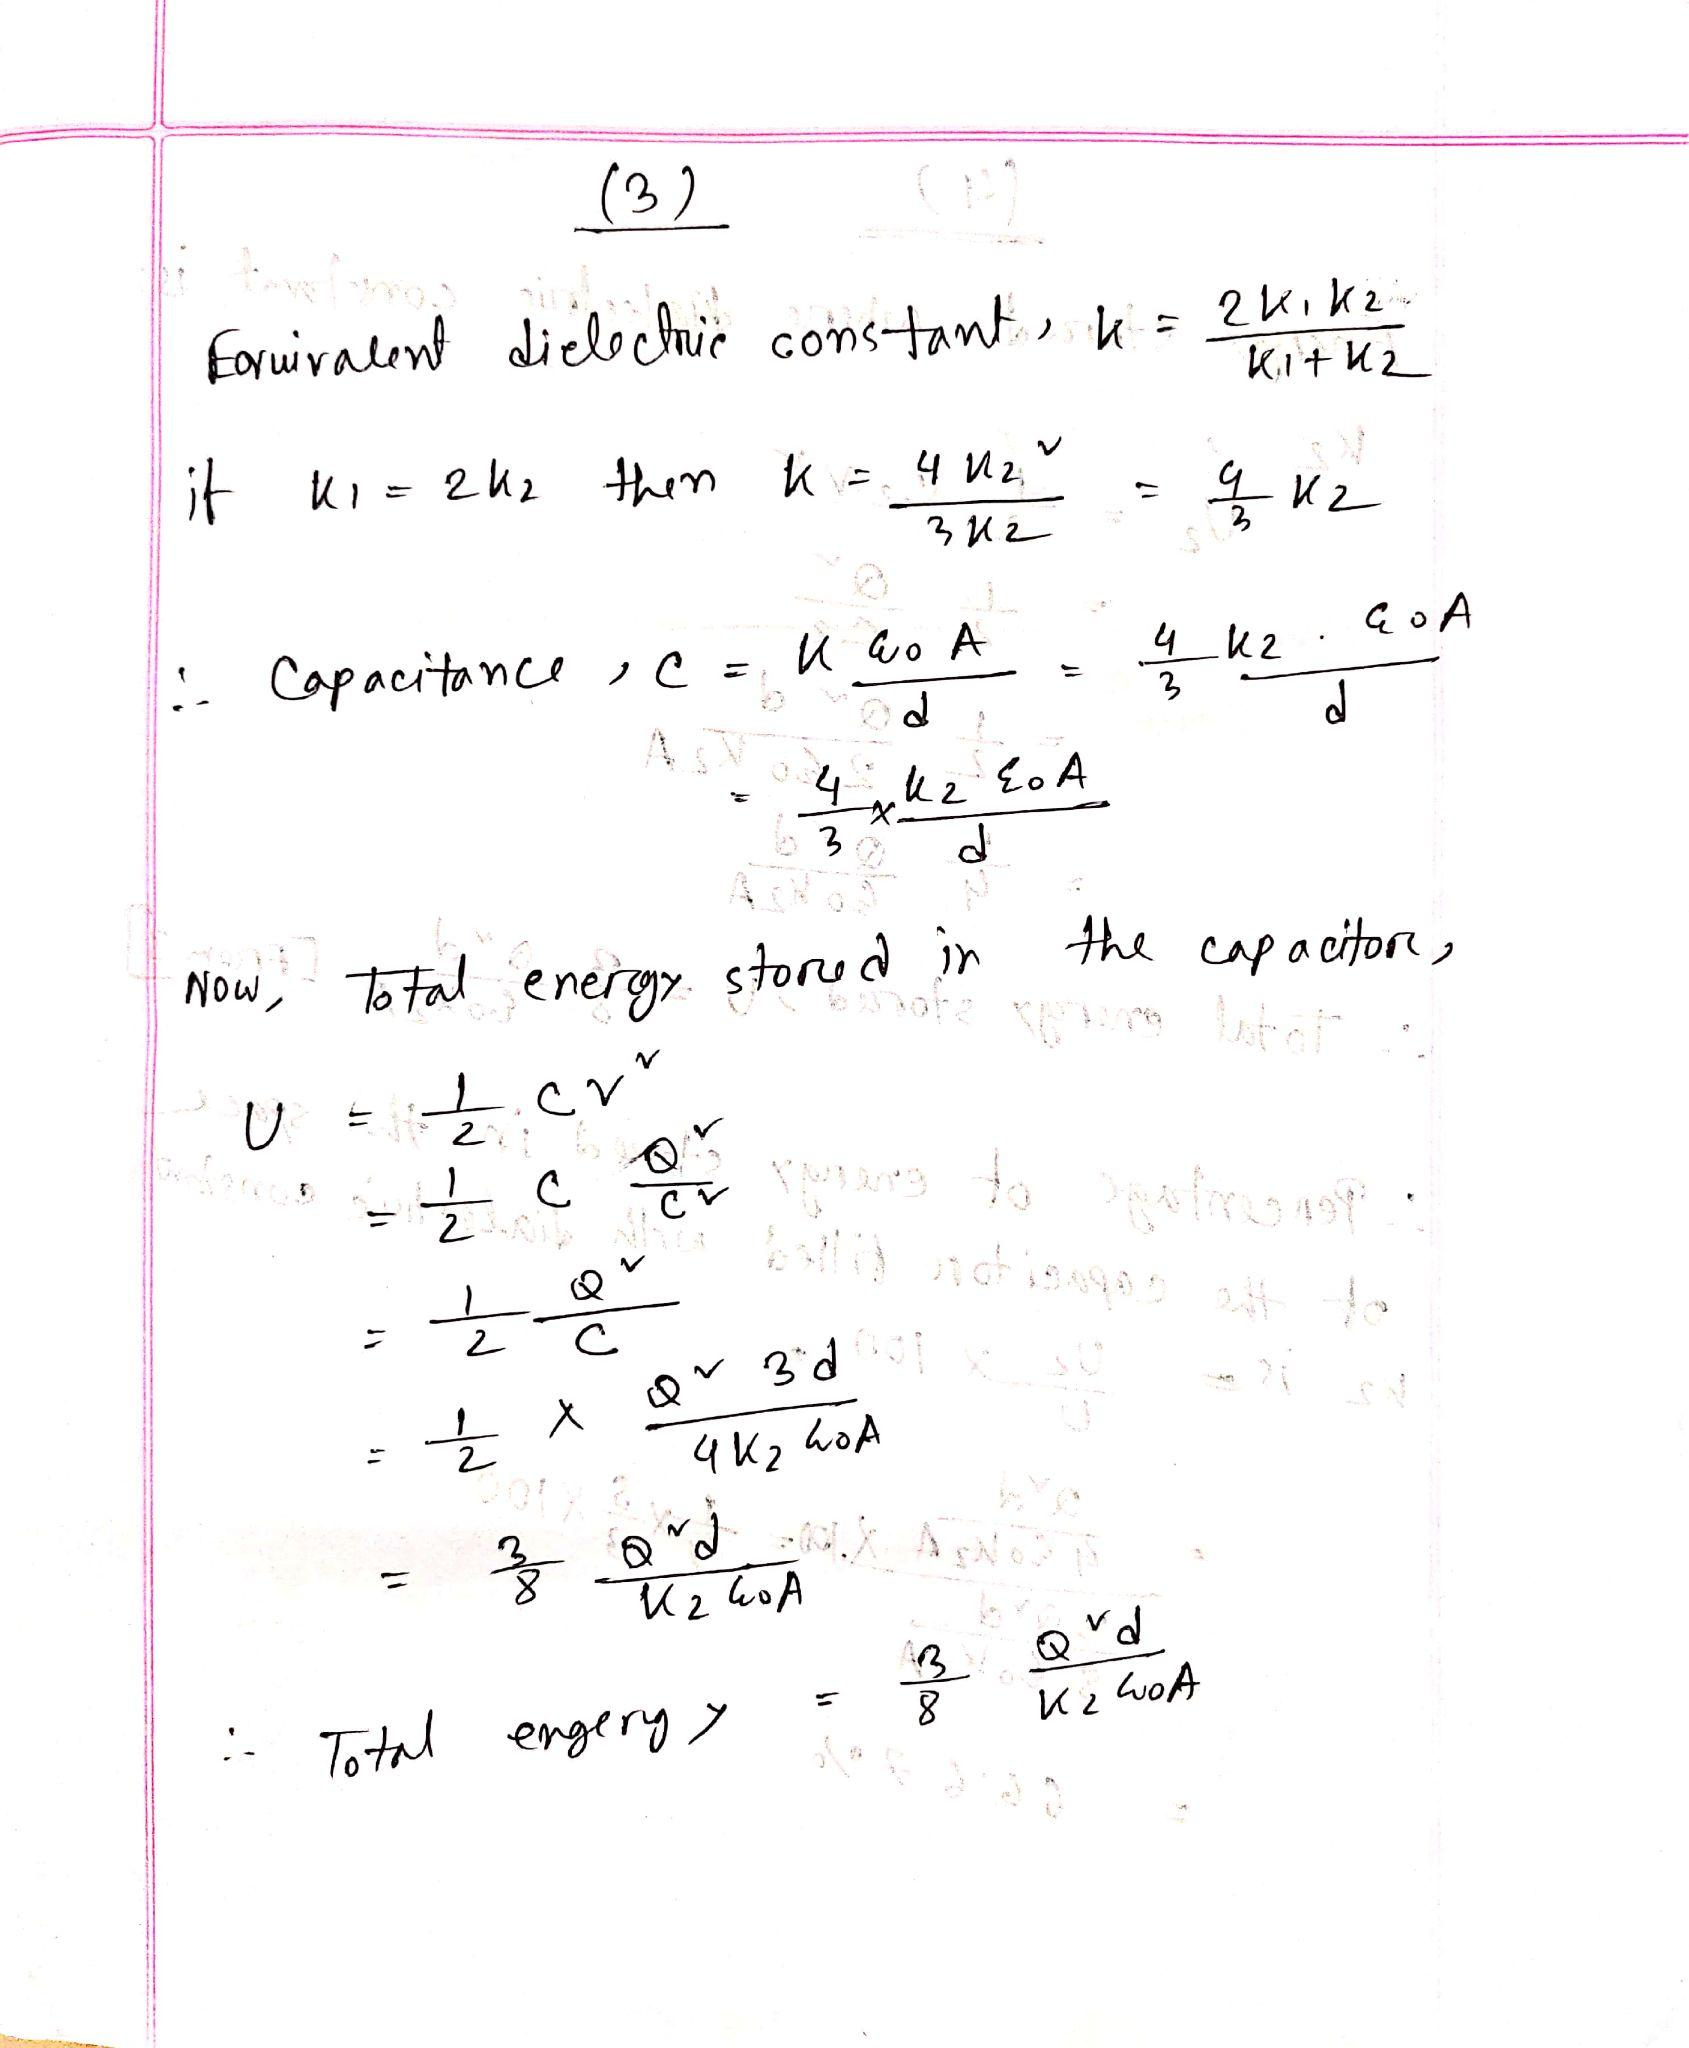 (3)
Equivalent dielectric constant, k = 2k1k2 / k1+k2
if k1 = 2k2 then k = 4k2² / 3k2 = 4/3 k2
∴ Capacitance, C = k ε0 A / d = 4/3 k2 . ε0A / d
= 4/3 × k2 ε0A / d
Now, Total energy stored in the capacitor,
U = 1/2 CV²
= 1/2 C Q²/C²
= 1/2 Q²/C
= 1/2 × Q² 3d / 4k2 ε0A
= 3/8 Q²d / k2 ε0A
∴ Total engergy = 3/8 Q²d / k2 ε0A